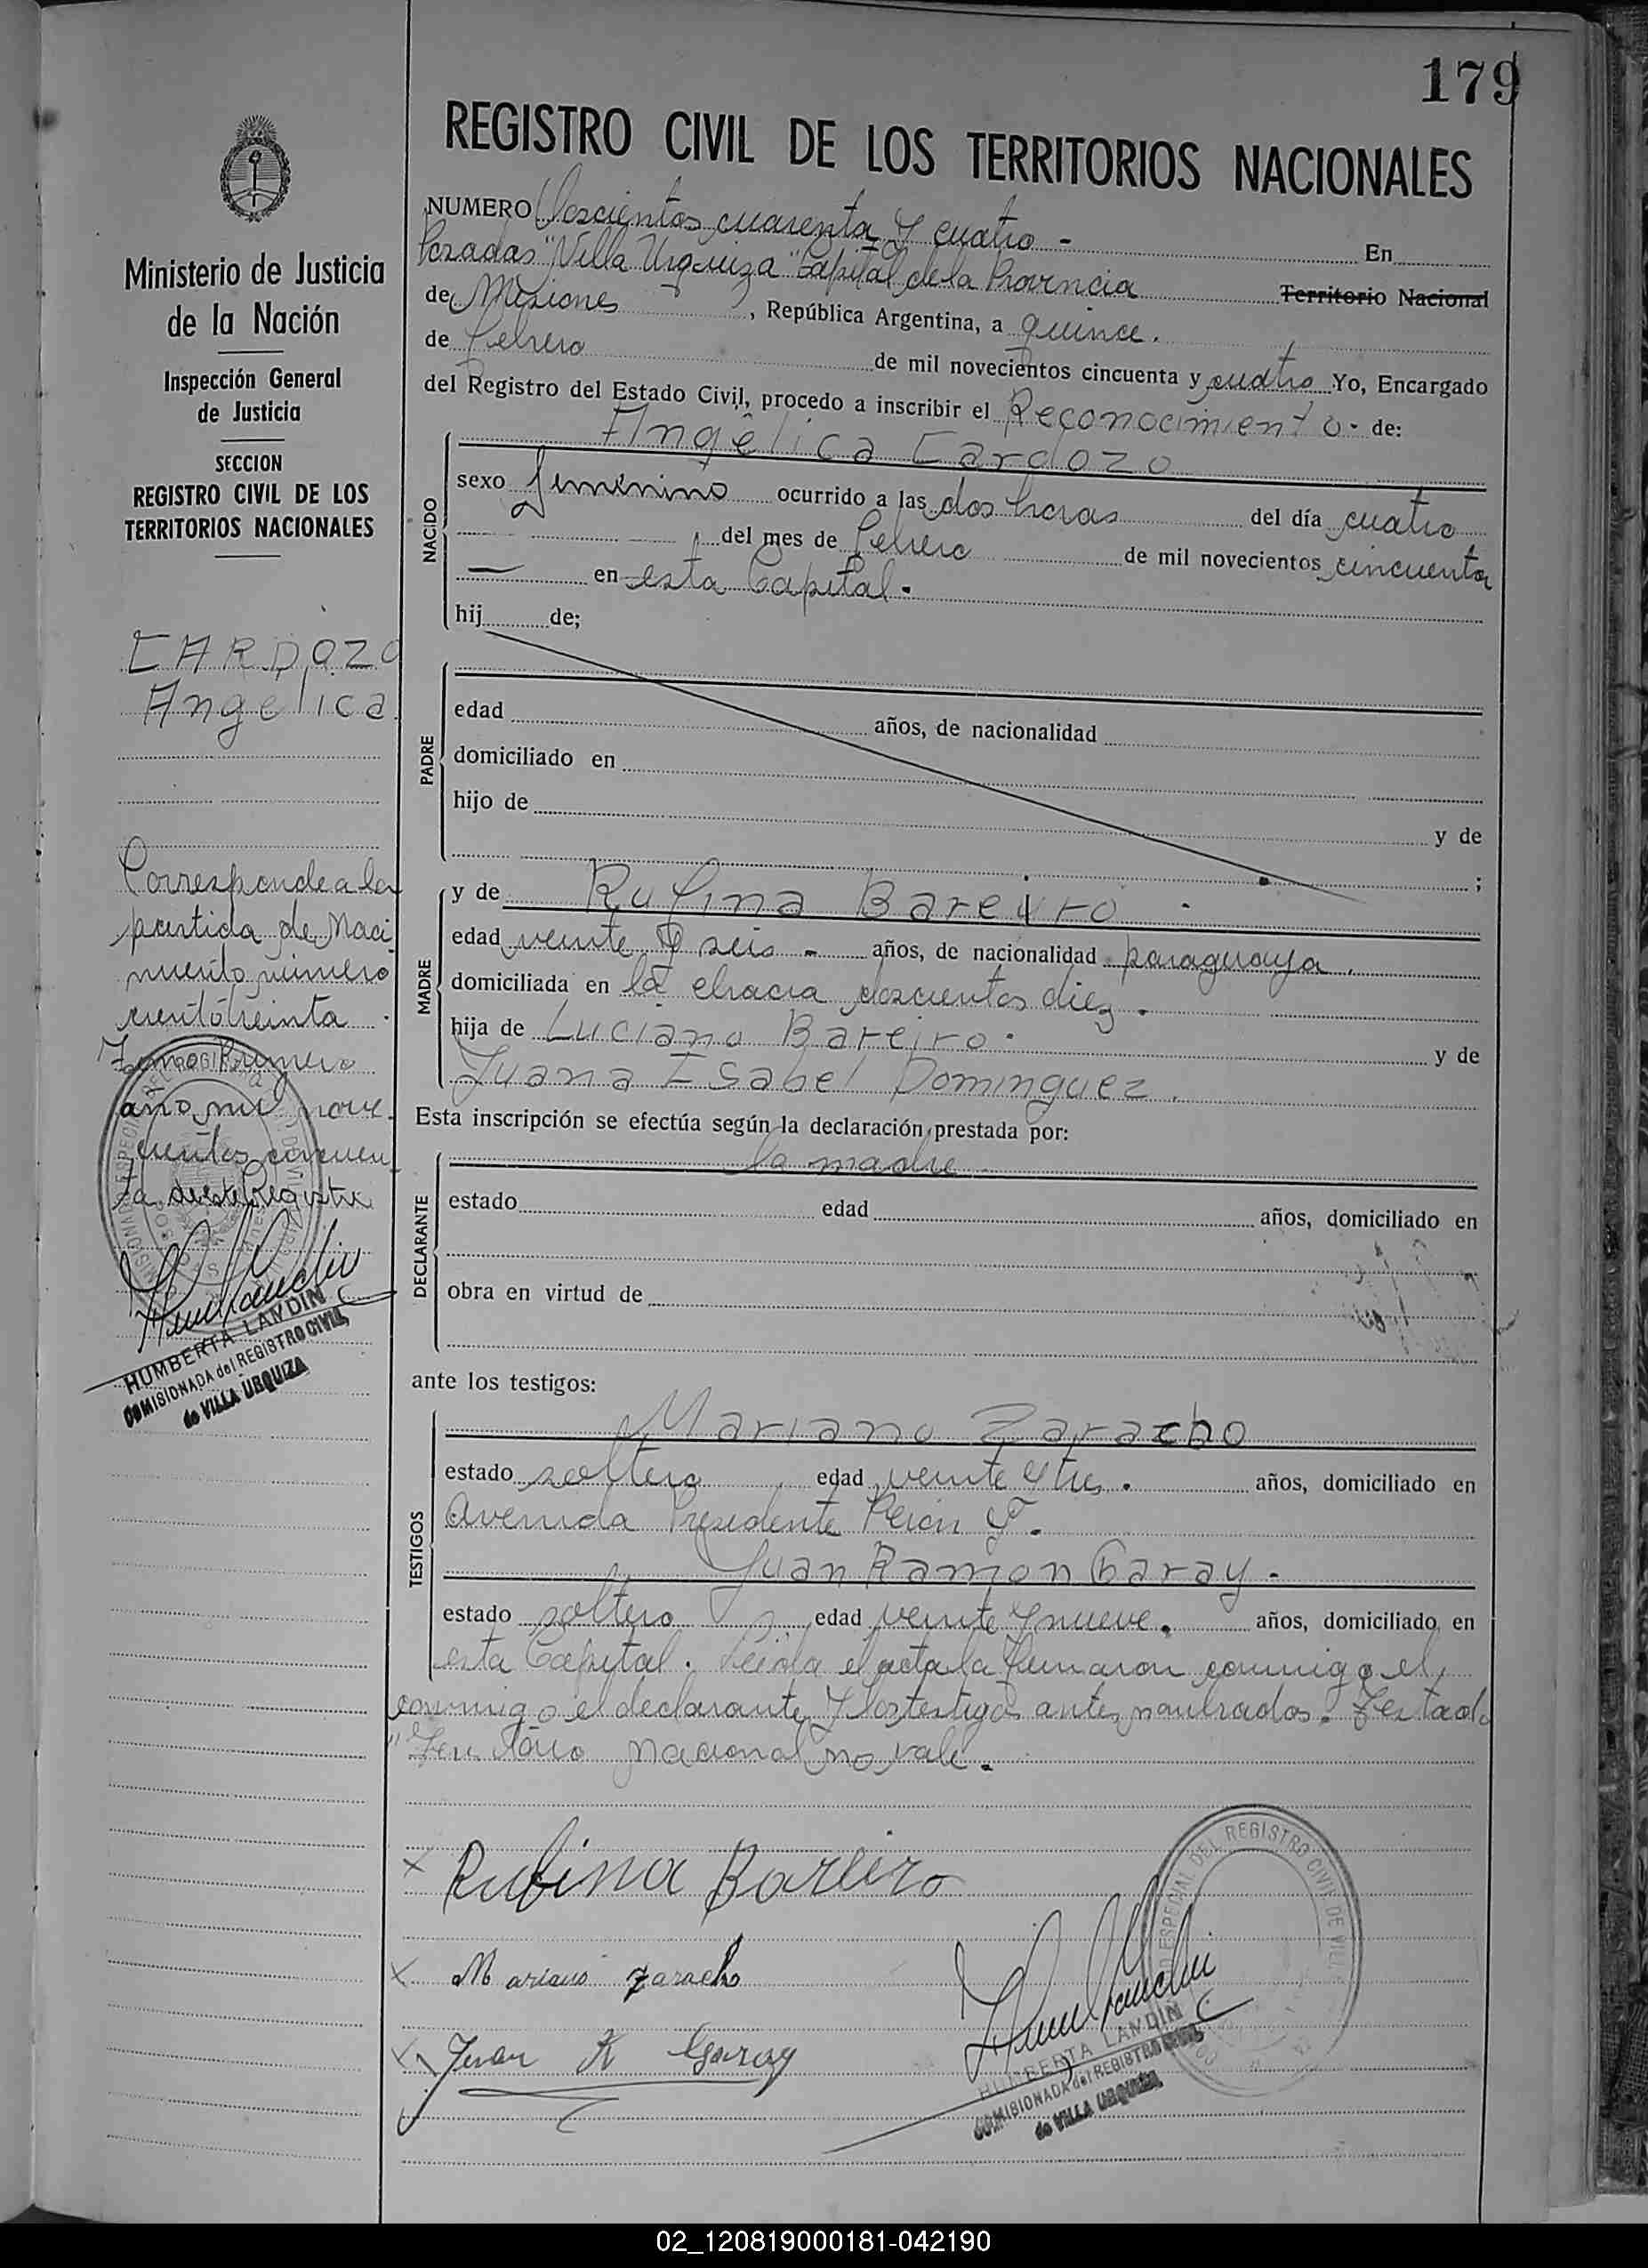 179
REGISTRO CIVIL DE LOS TERRITORIOS NACIONALES
NUMERO Doscientos cuarenta y cuatro - En
Posadas "Villa Urquiza" Capital de la Provincia Territorio Nacional
de Misiones, República Argentina, a quince.
de Febrero de mil novecientos cincuenta y cuatro Yo, Encargado
del Registro del Estado Civil, procedo a inscribir el Reconocimiento - de:
NACIDO
Angélica Cardozo
sexo femenino ocurrido a las dos horas del día cuatro
del mes de Febrero de mil novecientos cincuenta
— en esta Capital.
hij de;
PADRE
edad años, de nacionalidad
domiciliado en
hijo de y de
;
MADRE
y de Rufina Bareiro.
edad veinte y seis - años, de nacionalidad paraguaya.
domiciliada en la chacra doscientos diez.
hija de Luciano Bareiro. y de
Juana Isabel Dominguez.
Esta inscripción se efectúa según la declaración prestada por:
DECLARANTE
la madre
estado edad años, domiciliado en
obra en virtud de
ante los testigos:
TESTIGOS
Mariano Zaracho
estado soltero edad veinte y tres. años, domiciliado en
Avenida Presidente Perón
Juan Ramon Garay.
estado soltero edad veinte y nueve. años, domiciliado en
esta Capital. Leida el acta la firmaron conmigo el
conmigo el declarante y los testigos antes nombrados. Testado
"Territorio Nacional no vale.
Rufina Bareiro
Mariano Zaracho
Juan R Garay
HUMBERTA LANDIN
COMISIONADA del REGISTRO CIVIL
de VILLA URQUIZA
Ministerio de Justicia
de la Nación
Inspección General
de Justicia
SECCION
REGISTRO CIVIL DE LOS
TERRITORIOS NACIONALES
CARDOZO
Angelica.
Corresponde a la
partida de Naci
miento número
ciento treinta
Tomo Primero
año mil nove-
cientos cincuen
ta de este Registro
HUMBERTA LANDIN
COMISIONADA del REGISTRO CIVIL
de VILLA URQUIZA
02_120819000181-042190